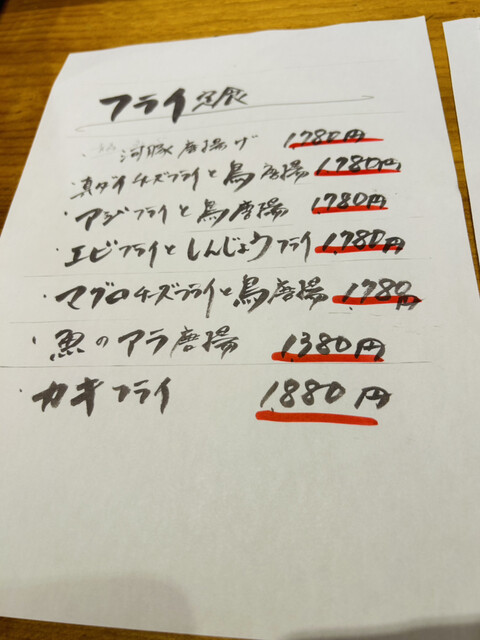 フライ定食
・河豚唐揚げ 1780円
・真ダイチーズフライと鳥唐揚 1780円
・アジフライと鳥唐揚 1780円
・エビフライとしんじょうフライ 1780円
・マグロチーズフライと鳥唐揚 1780円
・魚のアラ唐揚 1380円
・カキフライ 1880円